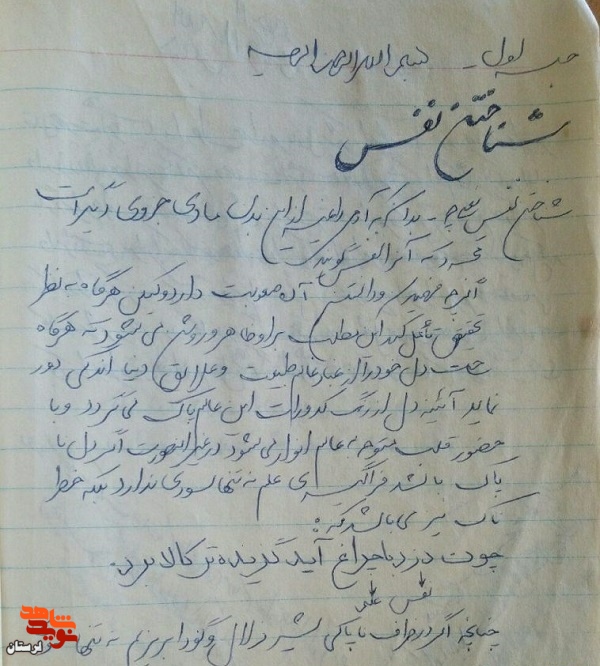 جلسه اول - بسم الله الرحمن الرحیم
شناختن نفس
شناختن نفس یعنی چه - بدانکه آدمی را غیر از این بدن مادی جزوی دیگر است
مجرد که آنرا نفس گویند
اگر چه فهمیدن و دانستن آن صعوبت دارد ولیکن هرگاه به نظر
تحقیق تأمل کند این مطلب بر او ظاهر و روشن می شود که هرگاه
دل خود را از غبار عالم طبیعت و علائق دنیا اندکی دور
نماید آئینه دل از زنگ کدورات این عالم پاک می گردد و با
حضور قلب متوجه به عالم انوار می شود در غیر اینصورت اگر دل نا
پاک باشد فراگیری علم نه تنها سودی ندارد بلکه خطر
ناک نیز می باشد که:
چون دزد با چراغ آید گزیده تر کالا برد.
نفس علم
چنانچه اگر در ظرف ناپاکی شیر زلال و گوارا بریزیم نه تنها
شاهد
نوید
لرستان